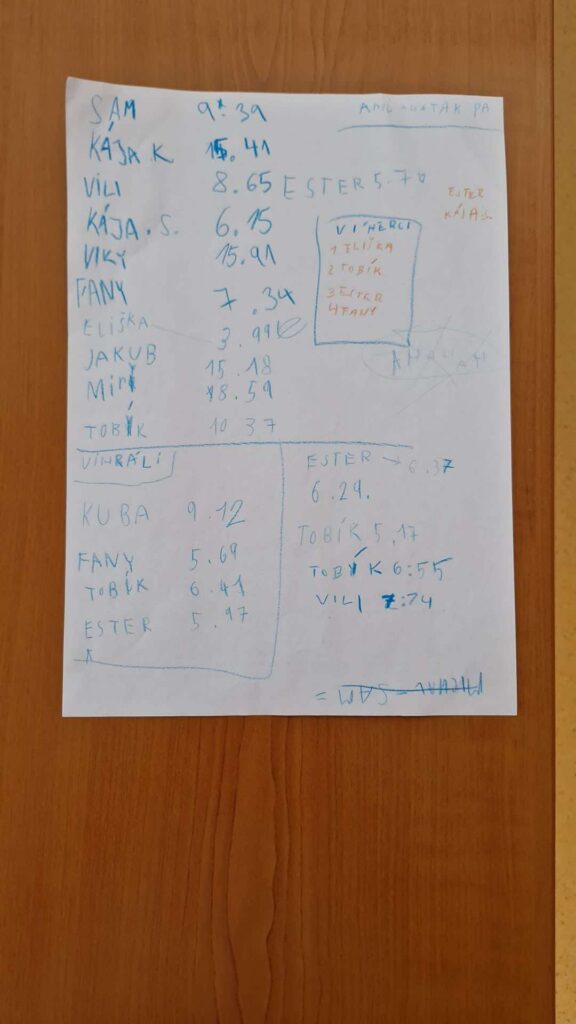 SÁM 9:39
KÁJA K. 15.41
VILI 8.65 ESTER 5.70
KÁJA.S. 6.15
VIKY 15.91
FANY 7.34
ELIŠKA 3.99
JAKUB 15.18
MIRY 18.59
TOBÍK 10 37
PA
ESTER
KÁJA S.
VÍHERCI
1 ELIŠKA
2 TOBÍK
3 ESTER
4 FANY
VIHRÁLI
KUBA 9.12
FANY 5.69
TOBÍK 6.41
ESTER 5.97
ESTER → 6.37
6.29.
TOBÍK 5,17
TOBÍK 6:55
VILI 7:74